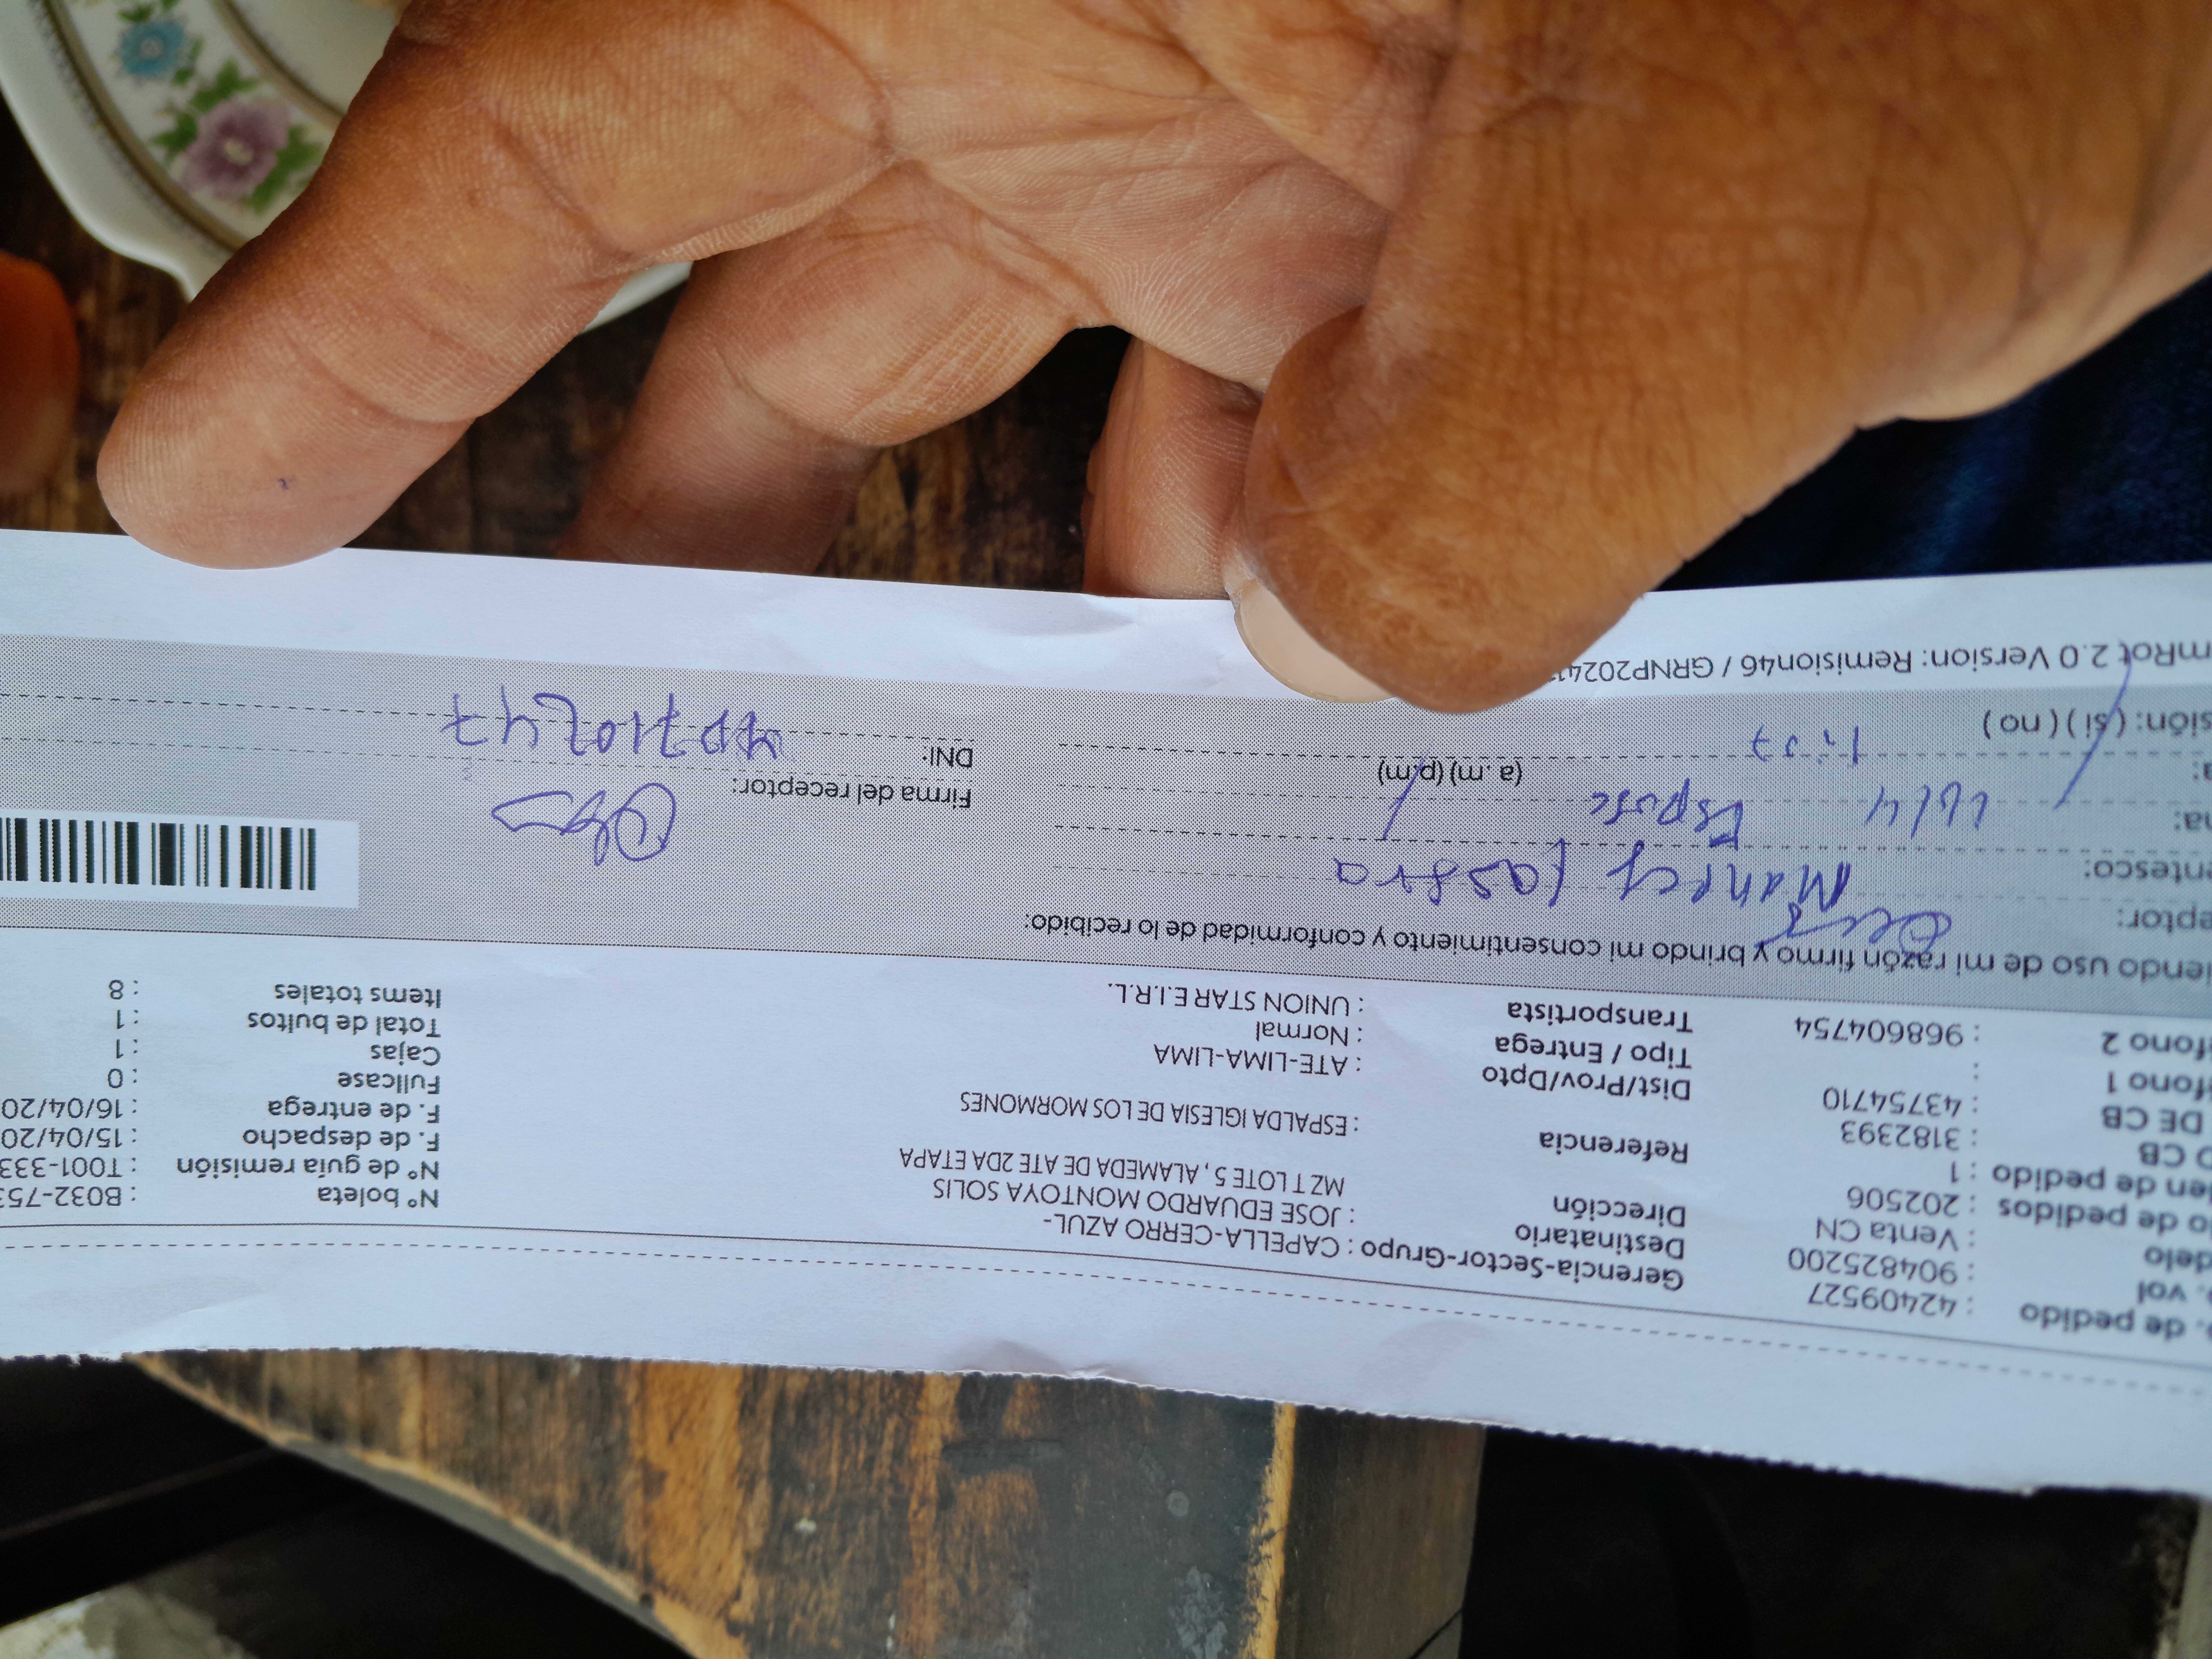 . de pedido : 42409527
. vol : 904825200
delo : Venta CN
o de pedidos : 202506
en de pedido : 1
O CB : 3182393
DE CB : 43754710
fono 1 :
fono 2 : 968604754
Gerencia-Sector-Grupo : CAPELLA-CERRO AZUL-
Destinatario : JOSE EDUARDO MONTOYA SOLIS
Dirección MZ T LOTE 5 , ALAMEDA DE ATE 2DA ETAPA
Referencia : ESPALDA IGLESIA DE LOS MORMONES
Dist/Prov/Dpto : ATE-LIMA-LIMA
Tipo / Entrega : Normal
Transportista : UNION STAR E.I.R.L.
N° boleta : B032-753
N° de guía remisión : T001-333
F. de despacho : 15/04/20
F. de entrega : 16/04/20
Fullcase : 0
Cajas : 1
Total de bultos : 1
Items totales : 8
iendo uso de mi razón firmo y brindo mi consentimiento y conformidad de lo recibido:
eptor:
entesco: Esposo
na:
a: (a. m) (p.m)
sión: ( si ) ( no )
Firma del receptor:
DNI:
mRot 2.0 Version: Remision46 / GRNP2024